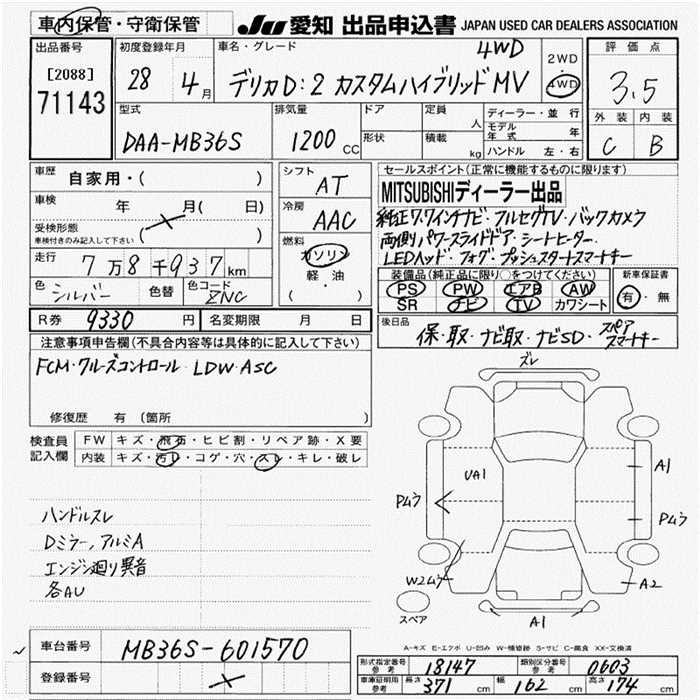 車内保管・守衛保管 JU 愛知 出品申込書 JAPAN USED CAR DEALERS ASSOCIATION
出品番号 [2088] 71143
初度登録年月 28 4月
車名・グレード 4WD デリカD:2 カスタムハイブリッドMV
2WD ・ 4WD
評価点 3.5
外装 C 内装 B
型式 DAA-MB36S
排気量 1200 CC
ドア 形状
定員 人 積載 kg
ディーラー・並行
モデル年式 年
ハンドル 左・右
車歴 自家用・( )
車検 年 月( 日)
受検形態 車検付きのみ記入して下さい ( )
走行 7万8千937km
色 シルバー 色替 色コード ZNC
シフト AT
冷房 AAC
燃料 ガソリン ・ 軽油 ( )
セールスポイント(正常に機能するものに限ります)
MITSUBISHIディーラー出品
純正ワ.ワインチナビ・フルセグTV・バックカメラ
両側パワースライドドア・シートヒーター・
LEDヘッド・フォグ・プッシュスタートスマートキー
装備品(純正品に限り○をつけてください) 新車保証書
PS PW エアB AW 有・無
SR ナビ TV カワシート
R券 9330 円 名変期限 月 日
後日品 保・取・ナビ取・ナビSD・スペアスマートキー
注意事項申告欄(不具合内容等は具体的に記入して下さい)
FCM・クルーズコントロール・LDW・ASC
修復歴 有(箇所 )
検査員記入欄
FW キズ・飛石・ヒビ割・リペア跡・X要
内装 キズ・汚レ・コゲ・穴・スレ・キレ・破レ
ハンドルスレ
Dミラー,アルミA
エンジン廻り異音
各AU
ズレ
UA1
A1
Pムラ
Pムラ
W2ムラ
A2
A1
スペア
A-キズ E-エクボ U-凹み W-補修跡 S-サビ C-腐食 XX-交換済
車台番号 MB36S-601570
登録番号
形式指定番号 参考 18147 類別区分番号 参考 0603
車庫証明用 参考 長さ 371 cm 幅 162 cm 高さ 174 cm